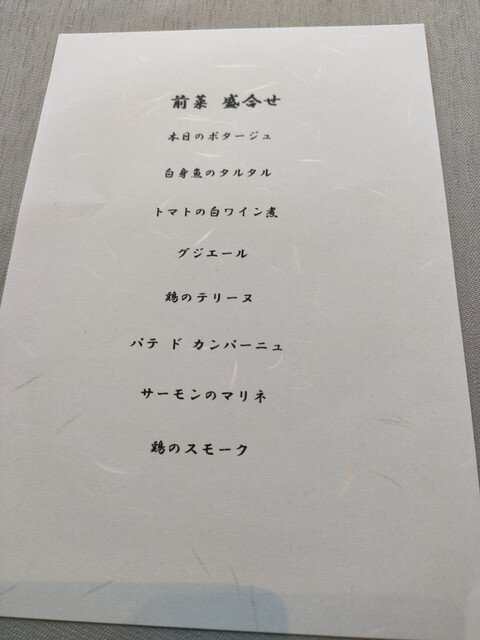 前菜 盛合せ
本日のポタージュ
白身魚のタルタル
トマトの白ワイン煮
グジエール
鶏のテリーヌ
パテ ド カンパーニュ
サーモンのマリネ
鶏のスモーク